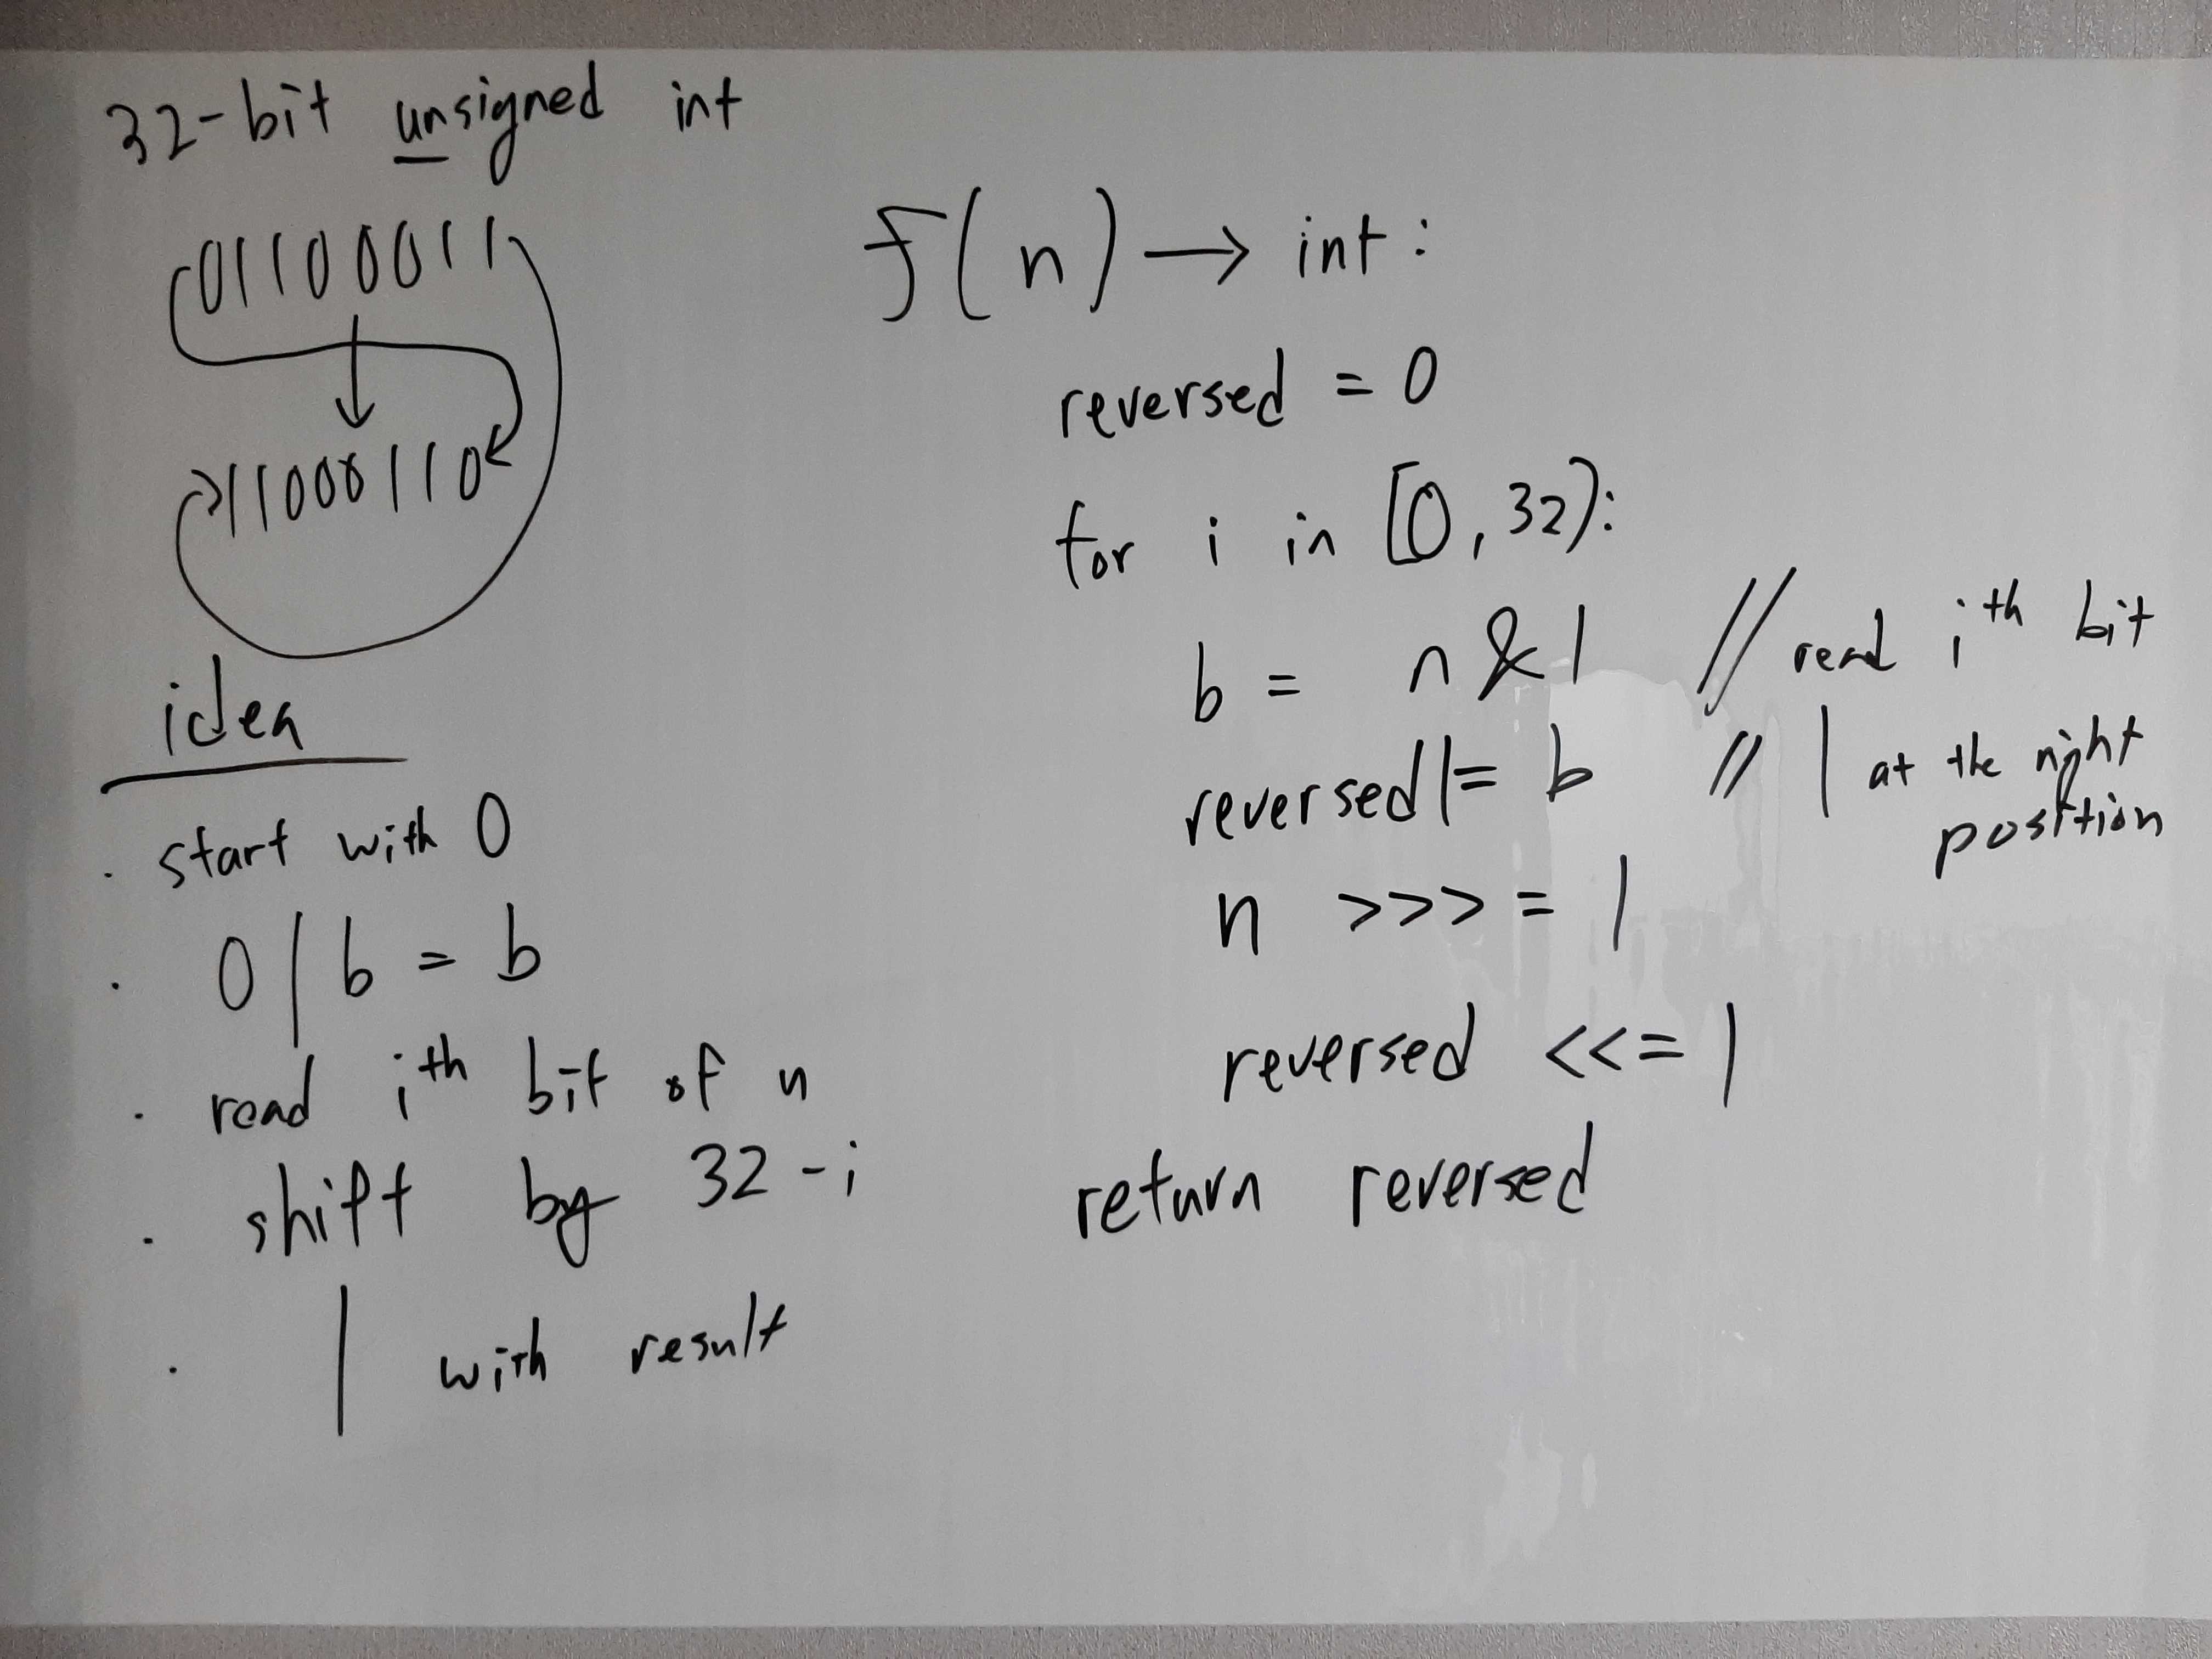 32-bit unsigned int
01100011
11000110
idea
· start with 0
· 0 | b = b
· read ith bit of n
· shift by 32 - i
· | with result
f(n) → int :
reversed = 0
for i in [0, 32):
b = n & 1 // read ith bit
reversed |= b // | at the right
position
n >>>= 1
reversed <<= 1
return reversed